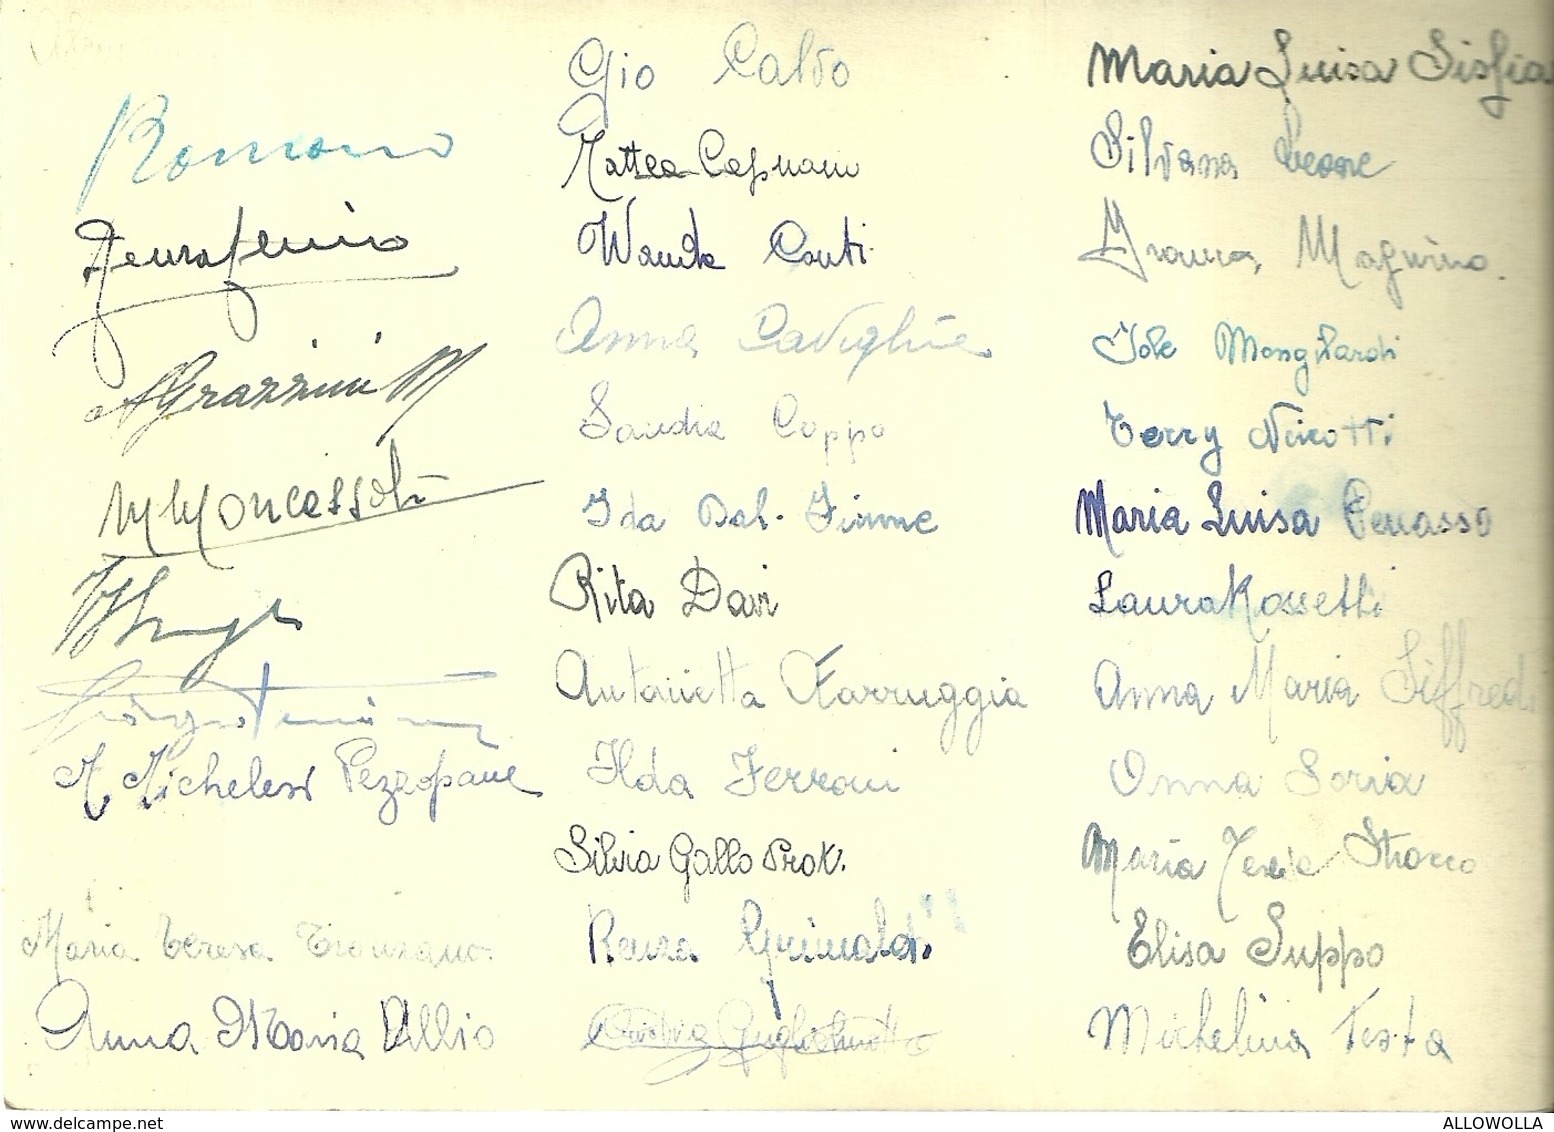 Romano
A Grazzini M
M Moncassoli
M Michelesi Pezzopane
Maria Teresa Tronzano
Anna Maria Ullio
Gio Calvo
Mattea Capuano
Wanda Conti
Anna Caviglia
Sandra Coppo
Ida Dal-Fiume
Rita Davi
Antonietta Farruggia
Ilda Ferroni
Silvia Gallo Prot.
Renza Grimaldi
Guglielminotti
Maria Luisa
Silvana Leone
Franca Magnino.
Iole Mongilardi
Terry Nicotti
Maria Luisa Perrasso
Laura Rossetti
Anna Maria Siffredi
Anna Soria
Maria Teresa
Elisa Suppo
Michelina Testa
www.delcampe.net
ALLOWOLLA